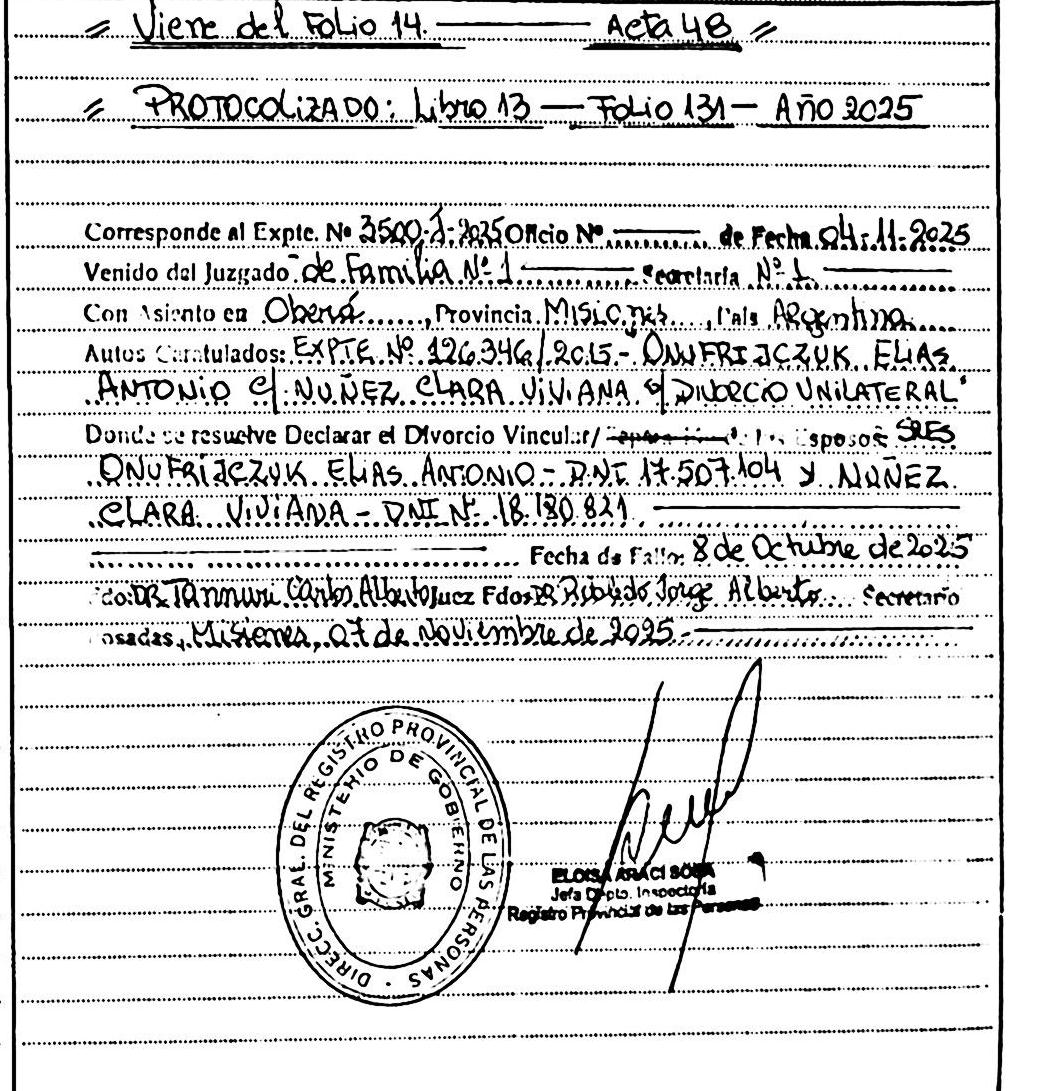 " Viene del Folio 14. — Acta 48 "
" PROTOCOLIZADO: Libro 13 — Folio 131 — Año 2025
Corresponde al Expte. Nº 3500-J-2025 Oficio Nº ........ de Fecha 04-11-2025
Venido del Juzgado de Familia Nº 1 — Secretaría Nº 1 —
Con Asiento en Oberá ......, Provincia Misiones ..., País Argentina
Autos Caratulados: EXPTE Nº 126.346/2015 - ONUFRIJCZUK ELIAS
ANTONIO C/ NUÑEZ CLARA VIVIANA S/ DIVORCIO UNILATERAL"
Donde se resuelve Declarar el Divorcio Vincular/ de los Esposos: SRES
ONUFRIJCZUK ELIAS ANTONIO - DNI 17.507.104 y NUÑEZ
CLARA VIVIANA - DNI Nº 18.180.821. —
— Fecha de Fallo: 8 de Octubre de 2025
do: DR. Tannuri Carlos Alberto Juez Fdo: DR Jorge Alberto ... Secretario
osadas, Misiones, 07 de Noviembre de 2025.-
DIRECC. GRAL. DEL REGISTRO PROVINCIAL DE LAS PERSONAS
MINISTERIO DE GOBIERNO
ELOISA ARACI SOSA
Jefa Dpto. Inspectoría
Registro Provincial de las Personas